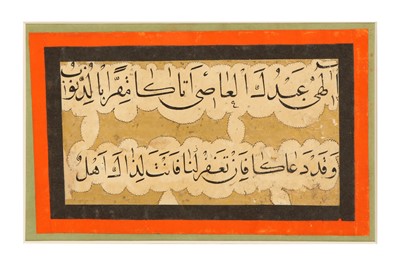 الهي عبدك العاصي اتاكا مقرا بالذنوب
وقد دعاكا فان تغفر لنا فانت لذاك اهل